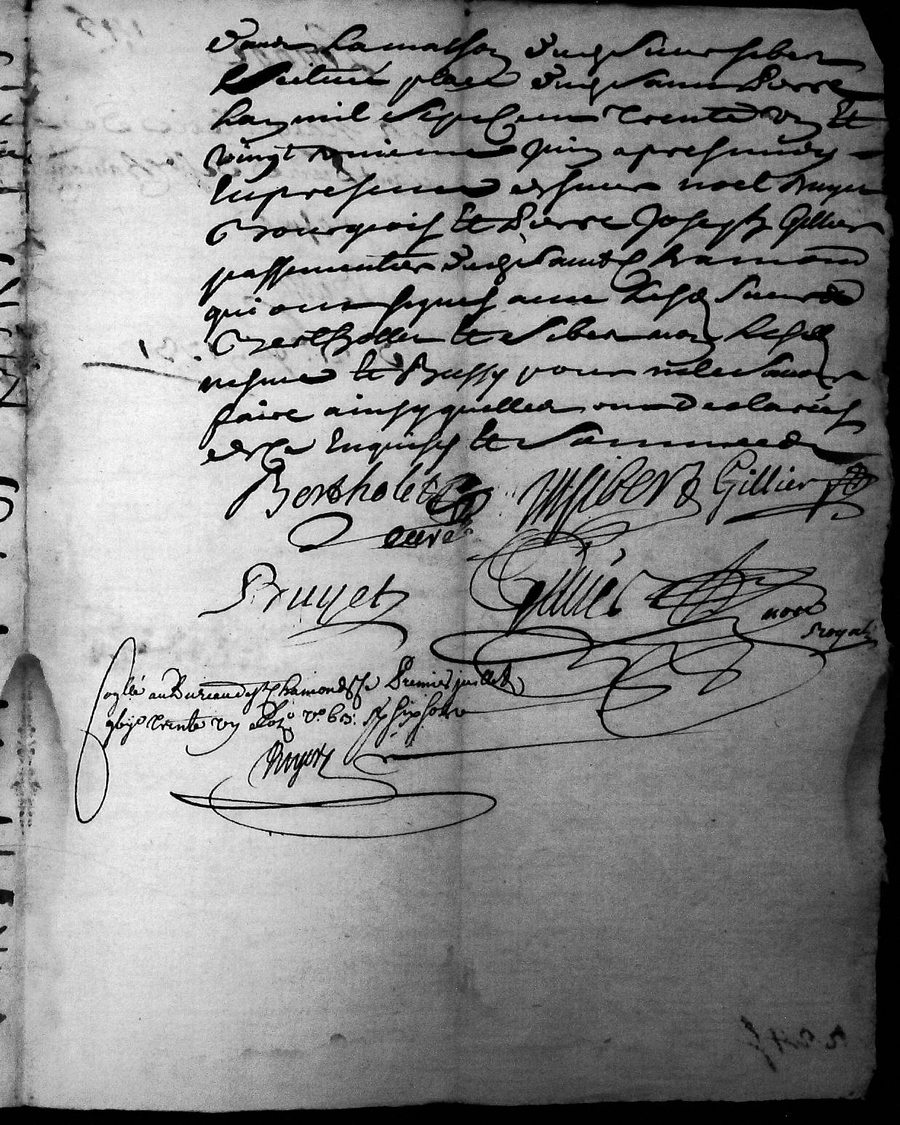 dans la maison dudt sieur sibert
scituée place dudt saint Pierre
Lan mil sept cen trente un Et
vingt unieme juin apres midy
En presence de sieur noel bruyet
Bourgeois Et Pierre Joseph Gillier
passementier dudt saint chamond
qui ont signés avec lesd sieurs
Bertholet Et sibert non lesd
Et Bussy pour ne le savoir
faire ainsy quelles ont declarées
de ce Enquises Et sommées
Bertholet M Sibert Gillier
curé
Bruyet Gillier not
Royal
au Bureau de st chamond le Premier juillet
trente un
Royer